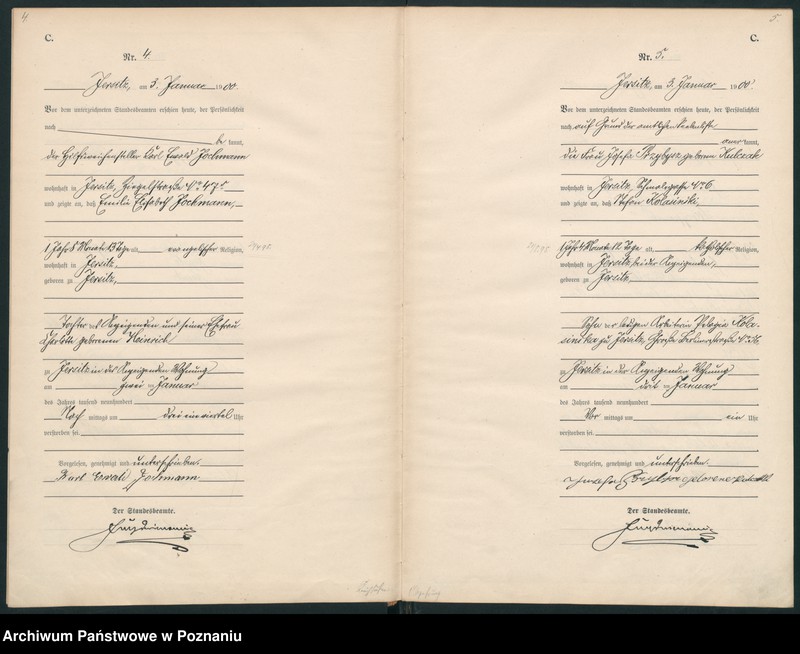 4
C.
Nr. 4.
Jersitz, am 3. Januar 1900.
Vor dem unterzeichneten Standesbeamten erschien heute, der Persönlichkeit
nach
be kannt,
der Hilfsweichensteller Karl Ewald Jockmann
wohnhaft in Jersitz, Ziegelstraße No 47
und zeigte an, daß Emilie Elisabeth Jockmann,
1 Jahr 8 Monate 13 Tage alt, evangelischer Religion,
wohnhaft in Jersitz,
geboren zu Jersitz,
Tochter des Anzeigenden und seiner Ehefrau
Charlotte geborenen Heinrich
zu Jersitz in des Anzeigenden Wohnung
am zwei ten Januar
des Jahres tausend neunhundert
Nach mittags um drei einviertel Uhr
verstorben sei.
Vorgelesen, genehmigt und unterschrieben.
Karl Ewald Jockmann
Der Standesbeamte.
5.
C.
Nr. 5.
Jersitz, am 3. Januar 1900.
Vor dem unterzeichneten Standesbeamten erschien heute, der Persönlichkeit
nach auf Grund der
aner kannt,
die Frau Josefa Przybysz geborene Kulczak
wohnhaft in Jersitz, No 6
und zeigte an, daß Stefan Kolasinski,
1 Jahr 4 Monate 12 Tage alt, katholischer Religion,
wohnhaft in Jersitz bei der Anzeigenden,
geboren zu Jersitz,
Sohn der ledigen Arbeiterin Pelagia Kola-
sinska zu Jersitz, Große Berlinerstraße No
zu Jersitz in der Anzeigenden Wohnung
am drit ten Januar
des Jahres tausend neunhundert
Vor mittags um ein Uhr
verstorben sei.
Vorgelesen, genehmigt und unterschrieben.
Der Standesbeamte.
Archiwum Państwowe w Poznaniu